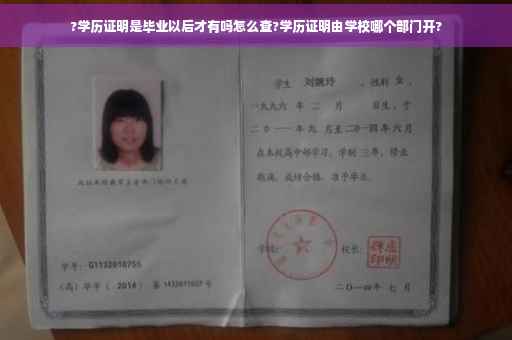 ?学历证明是毕业以后才有吗怎么查?学历证明由学校哪个部门开?
学生 刘婉玲 ，性别 女 ，
一九九六 年 二 月 日生，于
二〇一一 年 九 月至 二〇一四 年 六 月
在本校高中部学习，学制 三 年，修业
期满，成绩合格，准予毕业。
学号： G1132010755
（高）毕字（ 2014 ）第 1432011027 号
学校：
校长：
二〇一四年 七 月